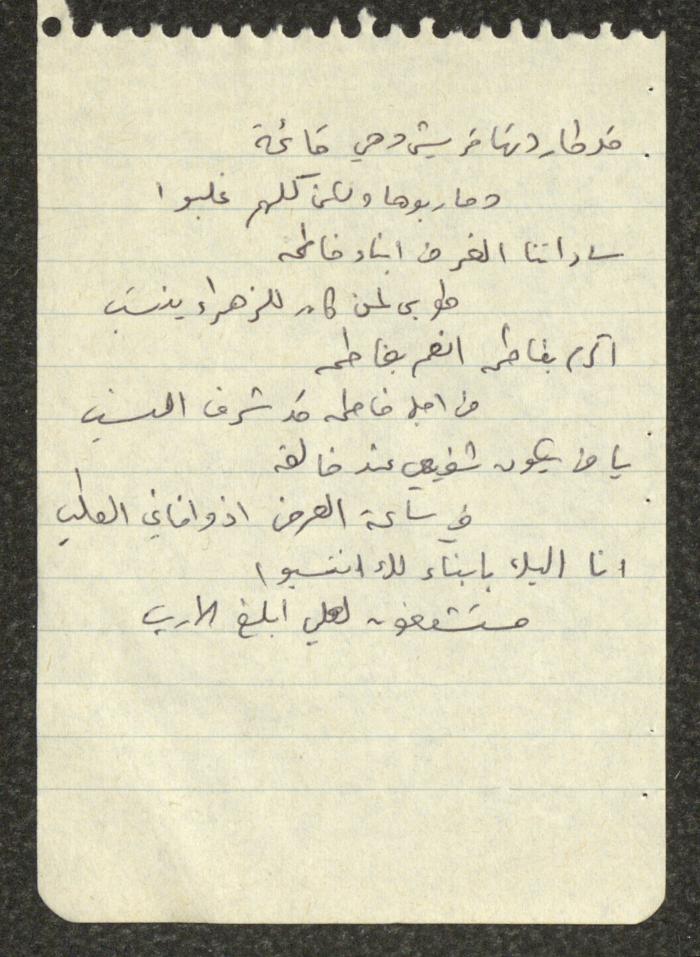 قد طاردتها قريش وهي قائمة
وحاربوها ولكن كلهم غلبوا
ساداتنا الغر من ابناء فاطمه
طوبى لمن كان للزهراء ينتسب
اكرم بفاطمه انعم بفاطمه
من اجل فاطمه قد شرف النسب
يا من يكون شفيعي عند خالقه
في ساعة العرض اذ وافاني الطلب
انا اليك بابناء لك انتسبوا
مستشفعون لعلي ابلغ الارب